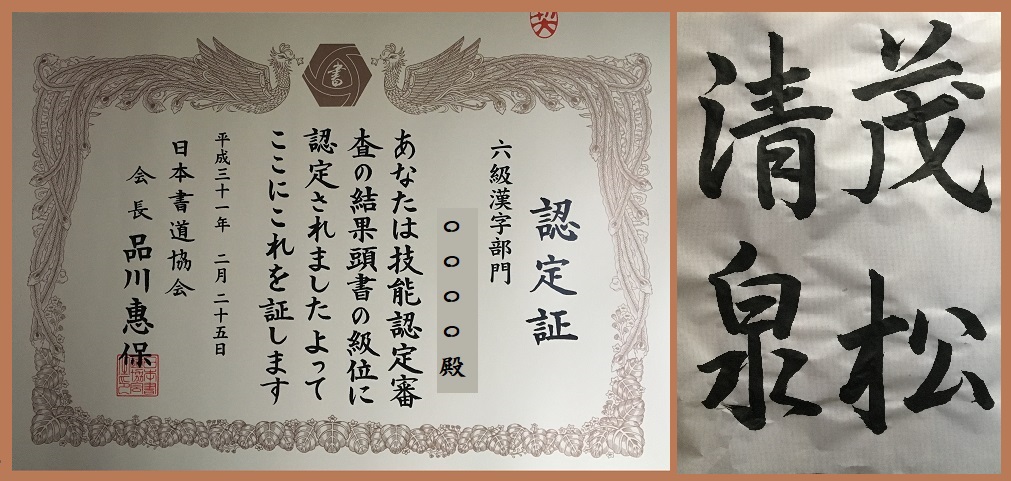 書
認定証
六級漢字部門
○○○○殿
あなたは技能認定審
査の結果頭書の級位に
認定されました よって
ここにこれを証します
平成三十一年 二月 二十五日
日本書道協会
会長 品川惠保
茂松
清泉